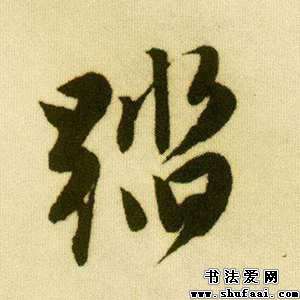 踏
书法爱网
www.shufaai.com